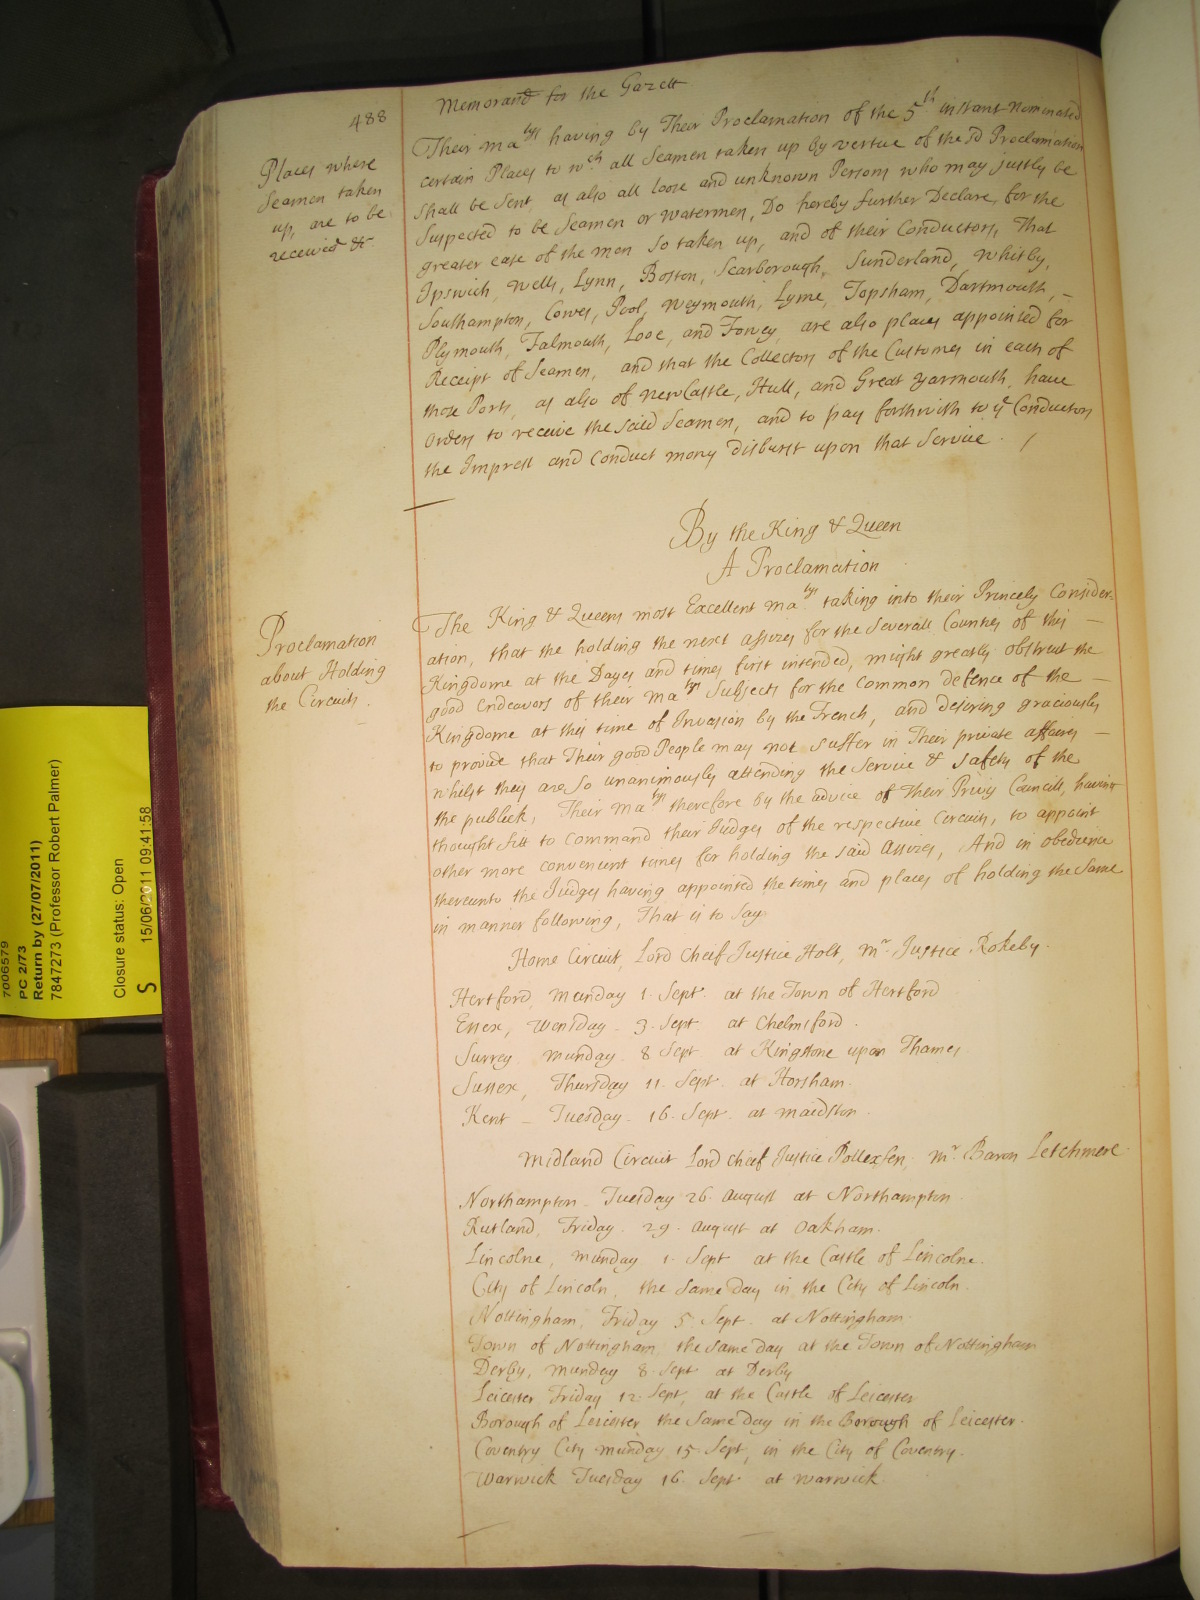 488
Memorand for the Gazett
Places where
Seamen taken
up, are to be
received &c
Their Ma^tys having by Their Proclamation of the 5^th instant nominated
certain Places to w^ch all Seamen taken up by vertue of the s^d Proclamation
shall be sent, as also all loose and unknown Persons who may justly be
suspected to be Seamen or Watermen, Do hereby further Declare, for the
greater ease of the men so taken up, and of their Conductors, That
Ipswich, Wells, Lynn, Boston, Scarborough, Sunderland, Whitby,
Southampton, Cowes, Pool, Weymouth, Lyme, Topsham, Dartmouth, –
Plymouth, Falmouth, Looe, and Fowey, are also places appointed for
Receipt of Seamen, and that the Collectors of the Customes in each of
those Ports, as also of NewCastle, Hull, and Great Yarmouth, have
Orders to receive the said Seamen, and to pay forthwith to y^e Conductors
the Imprest and Conduct mony disburst upon that Service. /
By the King & Queen
A Proclamation
Proclamation
about Holding
the Circuits.
The King & Queens most Excellent Ma^tys taking into their Princely Consider-
ation, that the holding the next Assizes for the Severall Counties of this –
Kingdome at the Dayes and times first intended, might greatly obstruct the
good Endeavors of their Ma^tys Subjects for the Common defence of the –
Kingdome at this time of Invasion by the French, and desiring graciously
to provide that Their good People may not suffer in Their private affaires –
whilst they are so unanimously attending the Service & safety of the
the publick, Their Ma^tys therefore by the advice of Their Privy Councill, having
thought fitt to command their Judges of the respective Circuits, to appoint
other more convenient times for holding the said Assizes, And in obedience
thereunto the Judges having appointed the times and places of holding the same
in manner following, That is to say
Home Circuit, Lord Cheif Justice Holt, M^r. Justice Rokeby.
Hertford, Munday 1. Sept. at the Town of Hertford
Essex, Wensday. 3. Sept. at Chelmsford.
Surrey Munday. 8 Sept. at Kingstone upon Thames
Sussex, Thursday 11. Sept. at Horsham.
Kent – Tuesday. 16. Sept. at Maidston.
Midland Circuit Lord Cheif Justice Pollexfen, M^r. Baron Letchmere
Northampton. Tuesday 26. August at Northampton.
Rutland, Friday. 29. August at Oakham.
Lincolne, Munday 1. Sept at the Castle of Lincolne.
City of Lincoln, the same day in the City of Lincoln.
Nottingham, Friday 5. Sept. at Nottingham.
Town of Nottingham, the same day at the Town of Nottingham
Derby, Munday 8. Sept at Derby
Leicester Friday 12. Sept, at the Castle of Leicester
Borough of Leicester the same day in the Borough of Leicester.
Coventry City Munday 15. Sept, in the City of Coventry.
Warwick Tuesday 16. Sept. at Warwick.
7006579
PC 2/73
Return by (27/07/2011)
7847273 (Professor Robert Palmer)
Closure status: Open
15/06/2011 09:41:58
S